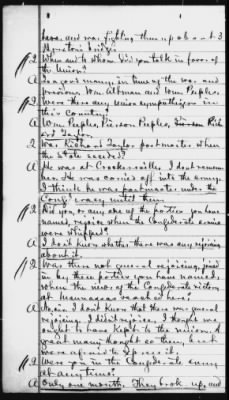 here and was fighting them up about 3
Myrston's bridge.
Q When and to whom did you talk in favor of
the Union?
A To a good many, in time of the war and
previous. Wm. Altman and Wm. Peeples.
Q Were there any Union sympathizers in
this County?
A Wm. Peeples, Pierson Peeples, Rich
ard Taylor.
Q Was Richard Taylor postmaster when
the State seceded?
A He was at Crocketville. I don't remem
ber. He was carried off into the army.
I think he was postmaster under the
Confederacy until then.
Q Did you, or any one of the parties you have
named, rejoice when the Confederate armies
were whipped?
A I don't know whether there was any rejoicing
about it.
Q Was there not general rejoicing, joined
in by these parties you have named,
when the news of the Confederate victory
at Manassas reached here?
A Again I don't know that there was general
rejoicing. I did n't rejoice. I thought we
ought to have kept to the union. A
great many thought so then, but
were afraid to express it.
Q Were you in the Confederate army
at any time?
A Only one month. They broke up, and